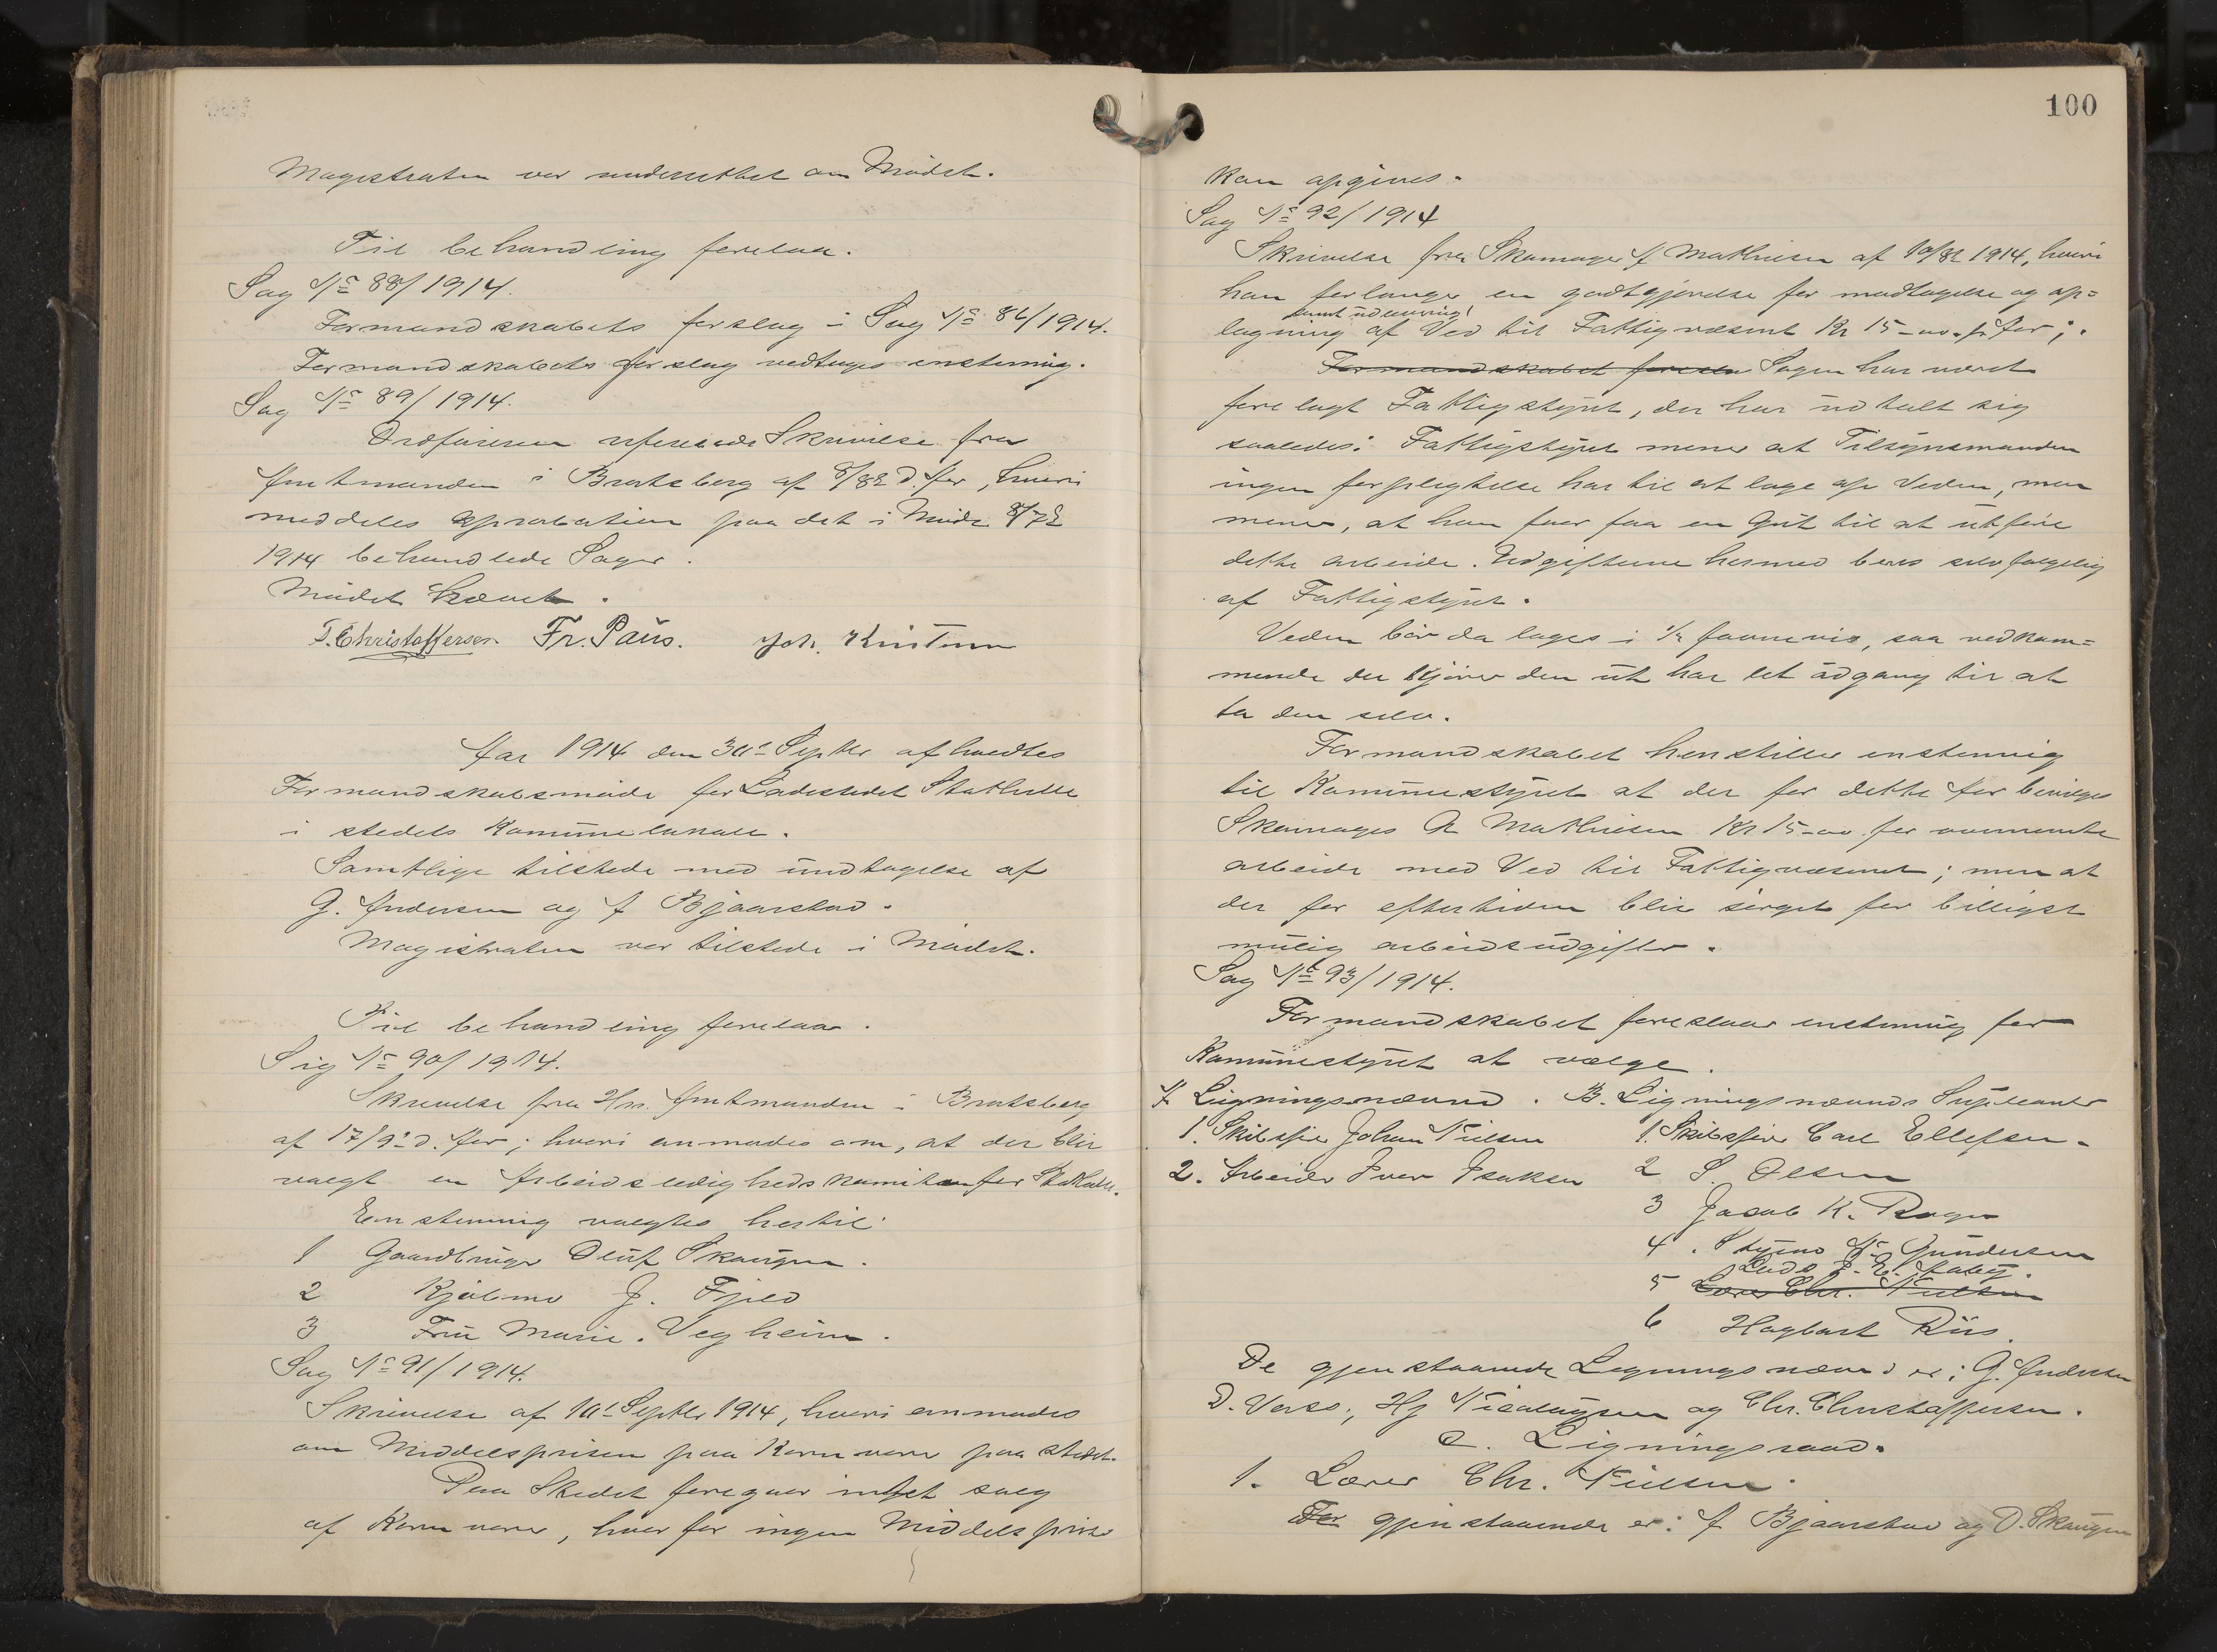 Magistraten var underrettet om Mødet.
Til behandling forelaa.
Sag No 88/1914.
Formandskabets forslag i Sag No 86/1914.
Formandskabets forslag vedtages enstemig.
Sag No 89/1914.
Ordføreren refererede Skrivelse fra
Amtmanden i Bratsberg af d. Aar, hvori
meddeles Aprobation paa det i Møde
1914 behandlede Sager.
Mødet hævet.
T. Christoffersen Fr. Paus. Joh.
Aar 1914 den 30te Septbr afholdtes
Formandskabsmøde for Ladestedet Stathelle
i stedets Komunelokale.
Samtlige tilstede med undtagelse af
G. Andersen og A Bjaarstad.
Magistraten var tilstede i Mødet.
Til behandling forelaa.
Sag No 90/1914.
Skrivelse fra Hr. Amtmanden i Bratsberg
af 17/9 d. Aar; hvori anmodes om, at der blir
valgt en Arbeidsledighedskomite for Stathelle.
Enstemmig valgtes hertil:
1 Gaardbruger Oluf Skaugen.
2 Kjøbmd J. Fjeld
3 Fru Marie Vegheim.
Sag No 91/1914.
Skrivelse af 10de Septbr 1914, hvori anmodes
om Middelsprisen paa Kornvarer paa stedet.
Paa Stedet foregaar intet salg
af Kornvarer, hvorfor ingen Middelspris
100
kan opgives.
Sag No 92/1914
Skrivelse fra Skomager A Mathisen af 1914, hvori
han forlanger en godtgjørelse for modtagelse og op=
samt udlevering
lagning af Ved til Fattigvæsenet Kr 15-oo. pr Aar;.
Formandskabet foresla Sagen har været
forelagt Fattigstyret, der har udtalt sig
saaledes: Fattigstyret mener at Tilsynsmanden
ingen forpligtelse har til at lage op Veden, men
mener, at han faar faa en Gut til at utføre
dette arbeide. Udgifterne hermed bæres selvfølgelig
af Fattigstyret.
Veden bør da lages i 1/2 favnevis, saa vedkom=
mende der kjører den ut har let adgang til at
ta den selv.
Formandskabet henstiller enstemmig
til Komunestyret at der for dette Aar bevilges
Skomager A Mathisen Kr 15-oo for ovennevnte
arbeide med Ved til Fattigvæsenet; men at
der for eftertiden blir sørget for billigst
mulig arbeidsudgifter.
Sag No 93/1914.
Formandskabet foreslaar enstemmig for
Komunestyret at vælge.
A. Ligningsnævnd. B. Ligningsnævnds Supleanter
1. Skibsfører Johan Nielsen 1. Skibsfører Carl Ellefsen.
2. Arbeider Iver Isaksen 2 S. Olsen
3 Jacob K. Roger
4. Styrmd N. Gundersen
Lods J. E. Aaby.
5 Lærer Chr. Nielsen
6 Hagbart Riis.
De gjenstaaende Ligningsnævnd er; G. Andersen
D. Verso; Hj Nicolaysen og Chr. Christoffersen.
C. Ligningsraad.
1. Lærer Chr. Nielsen.
For gjenstaaende er: A Bjaarstad og O. Skaugen